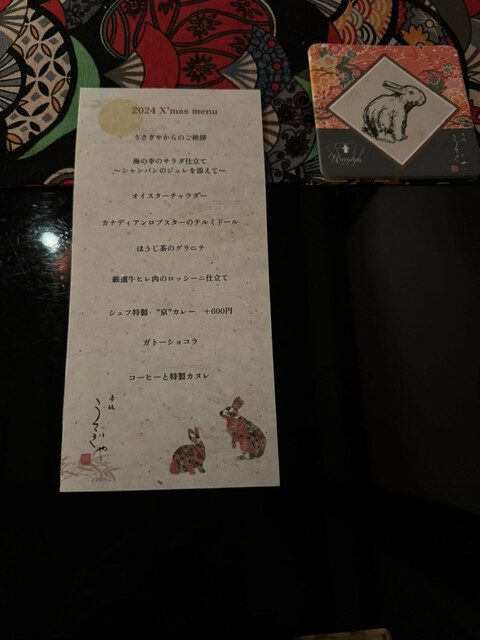 2024 X'mas menu
うさぎやからのご挨拶
海の幸のサラダ仕立て
～シャンパンのジュレを添えて～
オイスターチャウダー
カナディアンロブスターのテルミドール
ほうじ茶のグラニテ
厳選牛ヒレ肉のロッシーニ仕立て
シェフ特製 "京"カレー ＋600円
ガトーショコラ
コーヒーと特製カヌレ